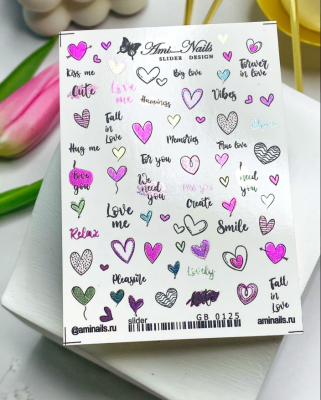 Ami_Nails
SLIDER DESIGN
Kiss me
Big love
Forever
in love
Cute
Love
me
Harmony
Vibes
Fall
in
Love
Memories
Hug me
True love
For you
I
love
you
We
need
you
I
need
you
Love
me
Create
Relax
Smile
Lovely
Pleasure
Fall
in
Love
@aminails.ru
slider
GB 0125
aminails.ru